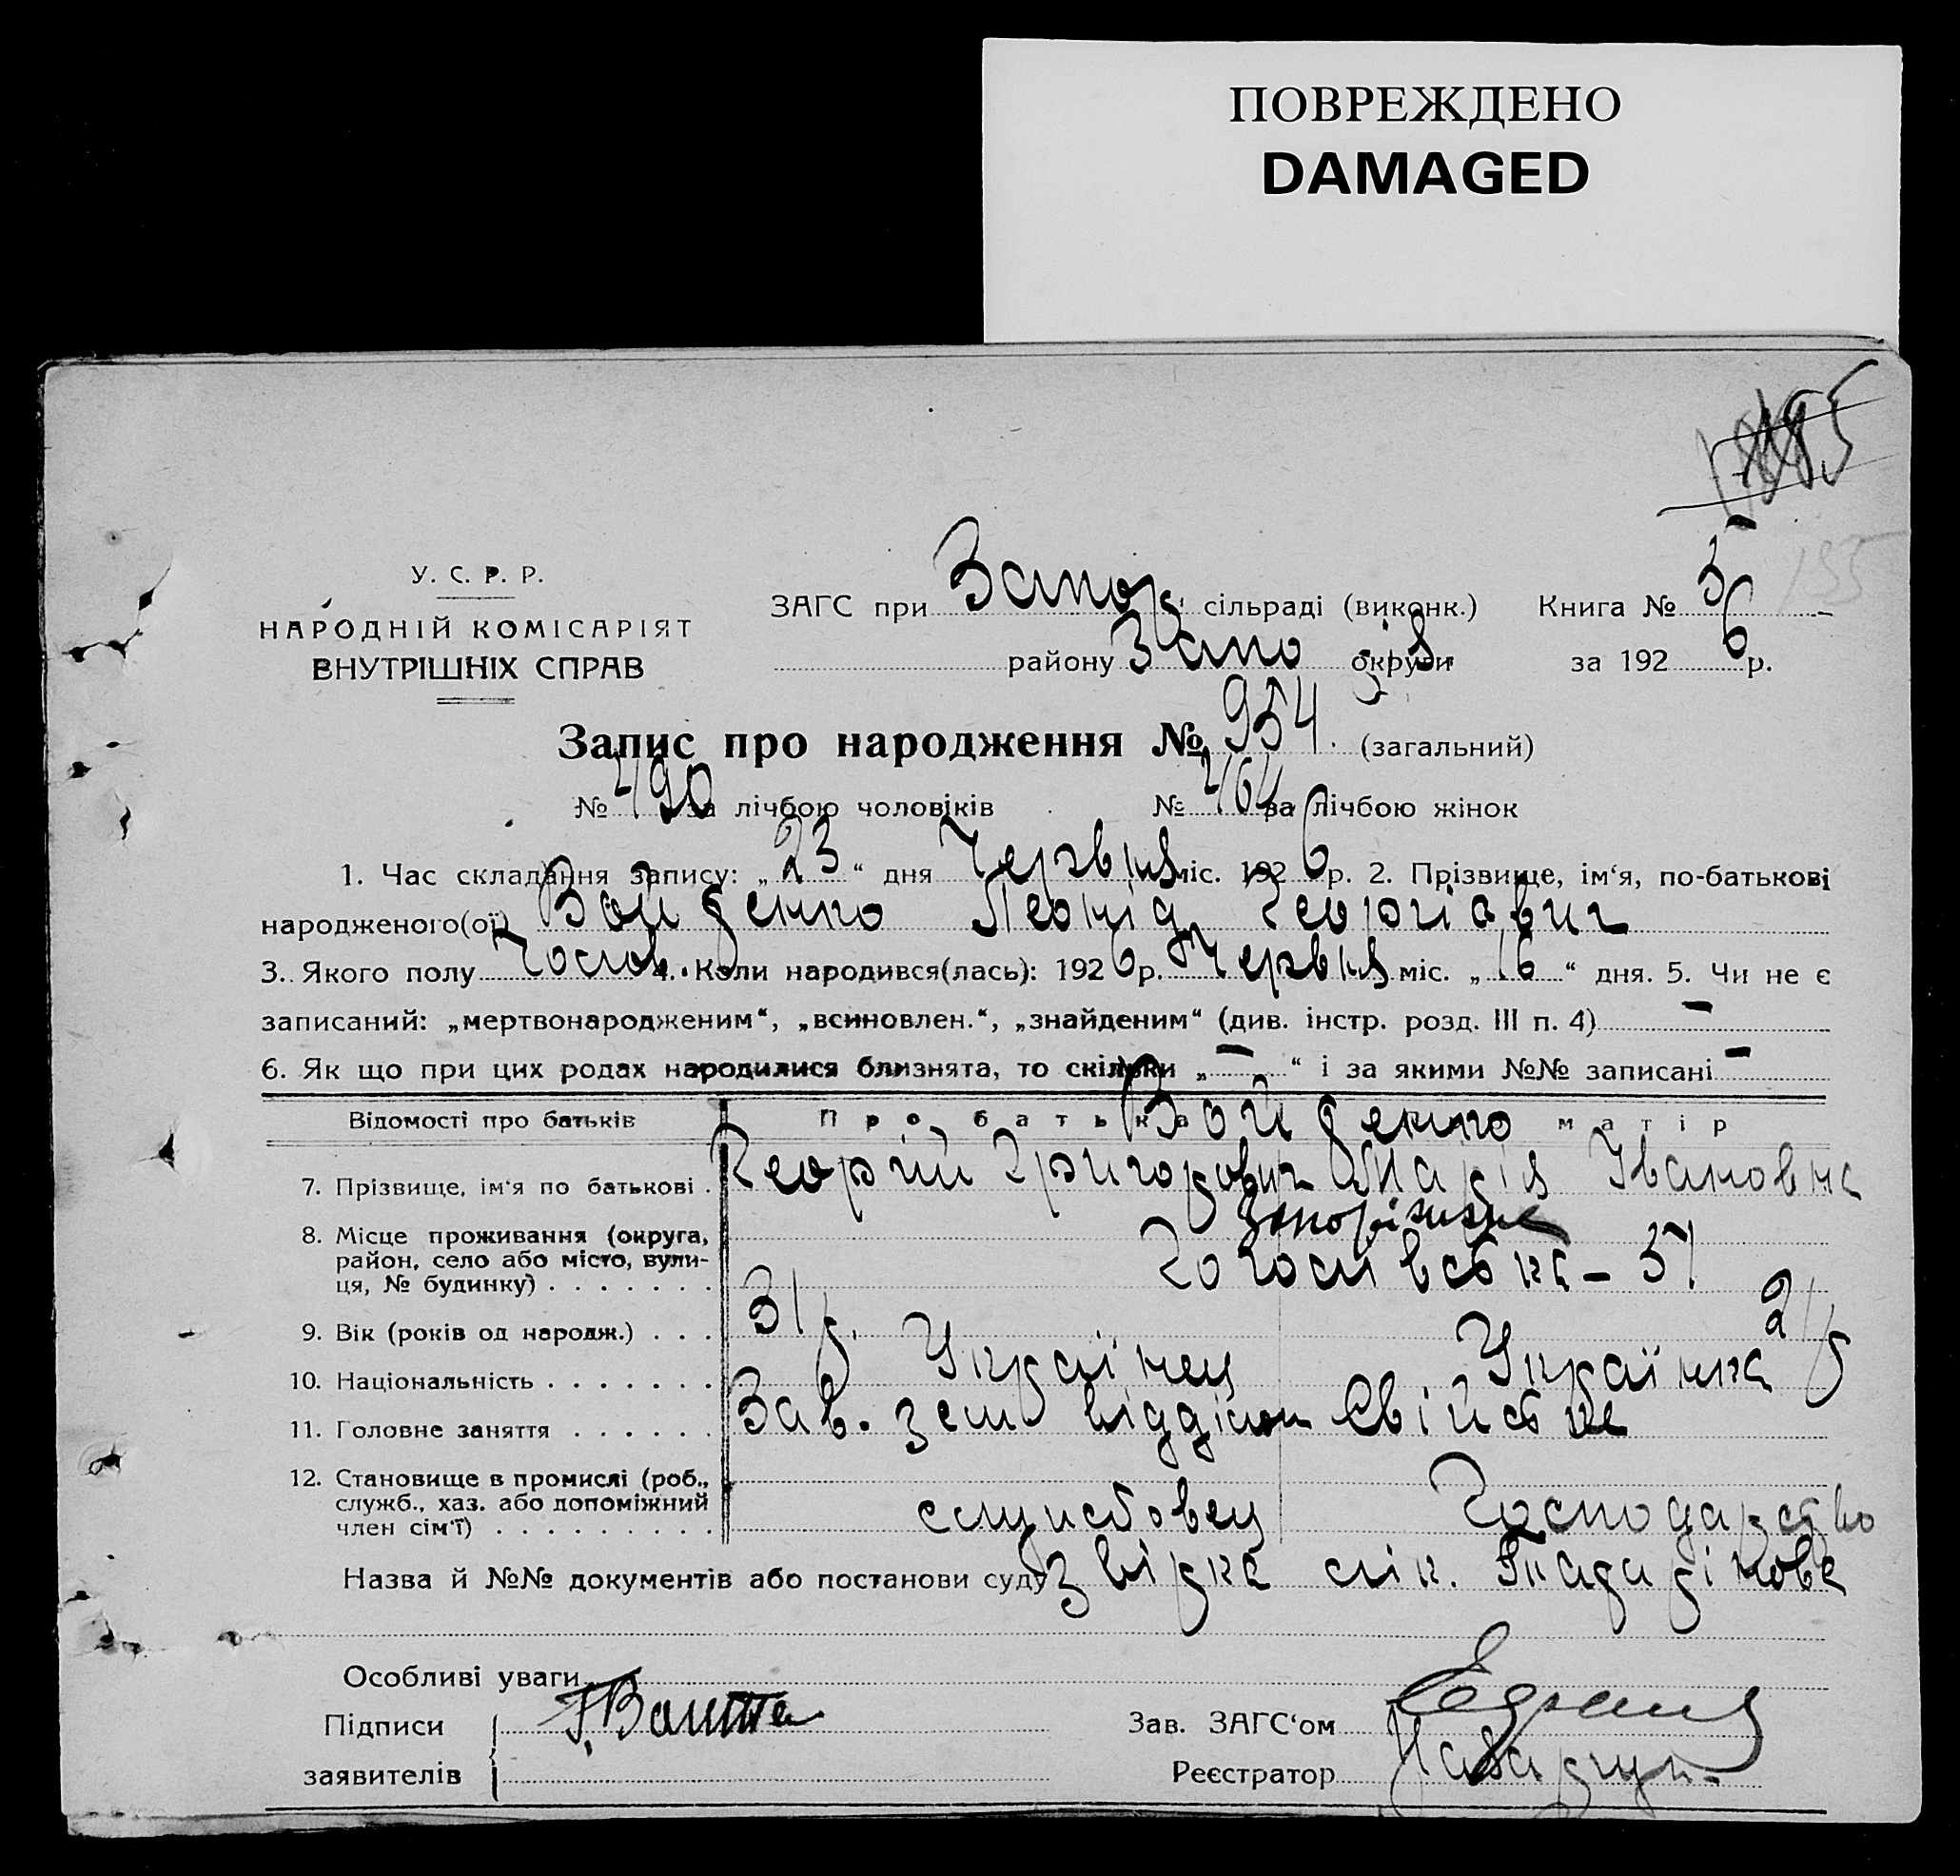 ПОВРЕЖДЕНО
DAMAGED
У. С. Р. Р.
НАРОДНІЙ КОМІСАРІЯТ
ВНУТРІШНІХ СПРАВ
ЗАГС при Запор. сільраді (виконк.) Книга № 5
155
району Запо округи за 1926 р.
Запис про народження № 954. (загальний)
№ 490 за лічбою чоловіків № 464 за лічбою жінок
1. Час складання запису: „23“ дня Червня міс. 1926 р. 2. Прізвище, ім‘я, по-батькові
народженого(ої) Войденко Леонід Георгіевич
3. Якого полу Чолов. 4. Коли народився(лась): 1926 р. Червня міс. „16“ дня. 5. Чи не є
записаний: „мертвонародженим“, „всиновлен.“, „знайденим“ (див. інстр. розд. III п. 4) —
6. Як що при цих родах народилися близнята, то скільки „ — “ і за якими №№ записані —
Відомості про батьків Про батька Войденко матір
7. Прізвище, ім‘я по батькові . Георгій Григорович Марія Івановна
8. Місце проживання (округа, район, село або місто, вулиця, № будинку) . . . . . . . Запоріжжя
Гоголівська – 57
9. Вік (років од народж.) . . . 31 р. 21 р
10. Національність . . . . . . . Українец Українка
11. Головне заняття . . . . . . Зав. зем відділом Свійське
12. Становище в промислі (роб., служб., хаз. або допоміжний член сім‘ї) . . . . . . . . . . службовец Господарство
Назва й №№ документів або постанови суду Звірка лік.
Особливі уваги
Підписи
заявителів
Зав. ЗАГС‘ом
Реєстратор